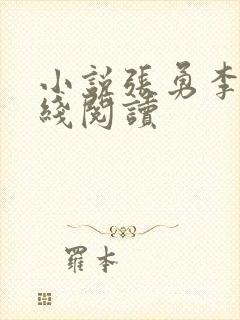 小説張勇李
綫閱讀
羅本